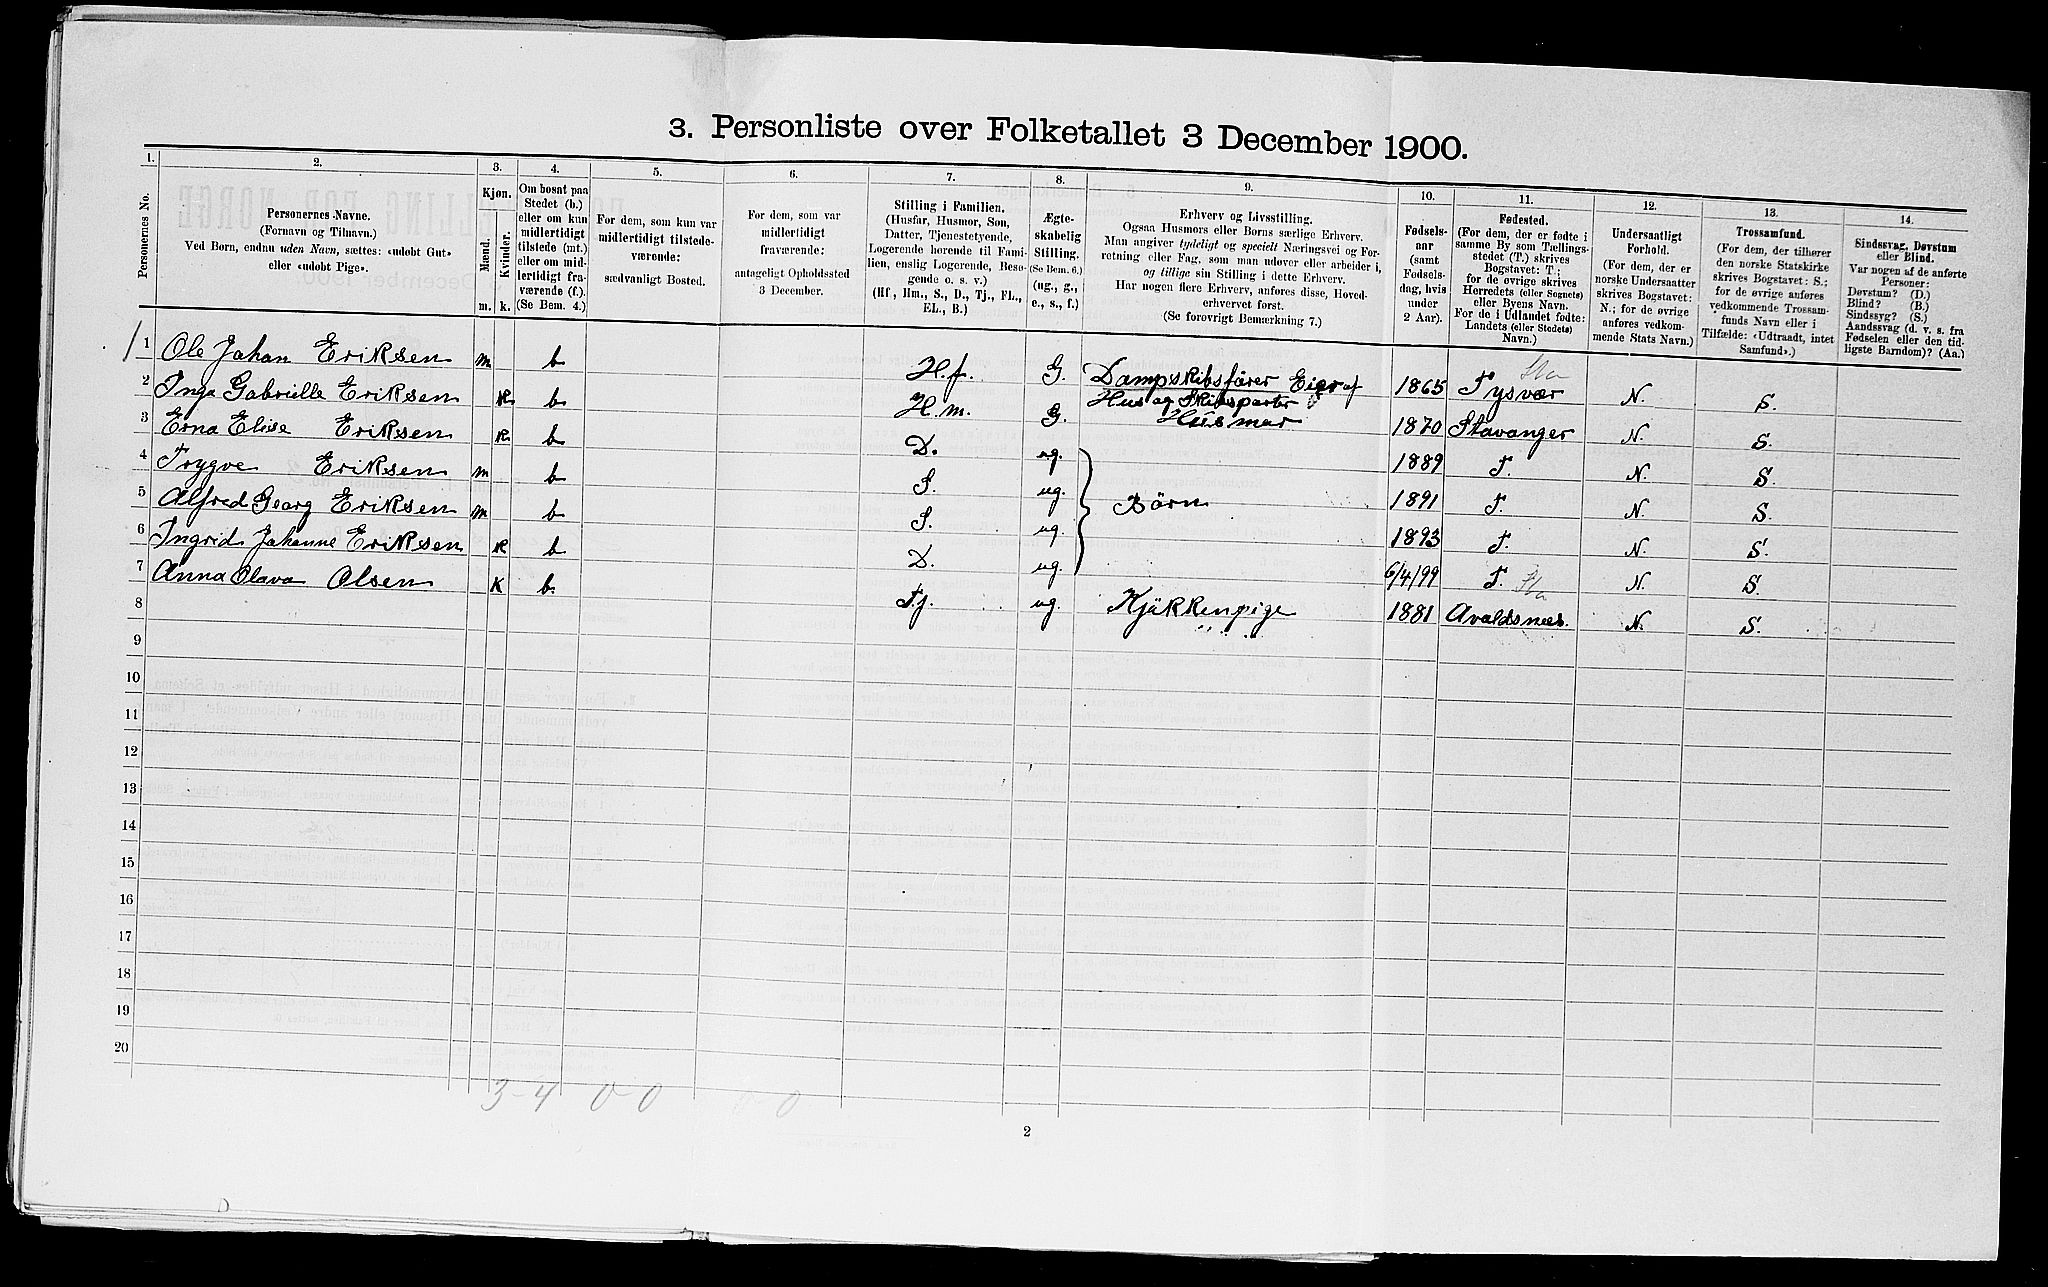 3. Personliste over Folketallet 3 December 1900.
1. 2. 3. 4. 5. 6. 7. 8. 9. 10. 11. 12. 13. 14.
Personernes No.
Personernes Navne.
(Fornavn og Tilnavn.)
Ved Børn, endnu uden Navn, sættes: «udøbt Gut»
eller «udøbt Pige».
Kjøn.
Mænd.
Kvinder.
m. k.
Om bosat paa
Stedet (b.)
eller om kun
midlertidigt
tilstede (mt.)
eller om mid-
lertidigt fra-
værende (f.).
(Se Bem. 4.)
For dem, som kun var
midlertidigt tilstede-
værende:
sædvanligt Bosted.
For dem, som var
midlertidigt
fraværende:
antageligt Opholdssted
3 December.
Stilling i Familien.
(Husfar, Husmor, Søn,
Datter, Tjenestetyende,
Logerende hørende til Fami-
lien, enslig Logerende, Besø-
gende o. s. v.)
(Hf., Hm., S., D., Tj., FL.,
EL., B.)
Ægte-
skabelig
Stilling.
(Se Bem. 6.)
(ug., g.,
e., s., f.)
Erhverv og Livsstilling.
Ogsaa Husmors eller Børns særlige Erhverv.
Man angiver tydeligt og specielt Næringsvei og For-
retning eller Fag, som man udøver eller arbeider i,
og tillige sin Stilling i dette Erhverv.
Har nogen flere Erhverv, anføres disse, Hoved-
erhvervet først.
(Se forøvrigt Bemærkning 7.)
Fødsels-
aar
(samt
Fødsels-
dag, hvis
under
2 Aar).
Fødested.
(For dem, der er fødte i
samme By som Tællings-
stedet (T.) skrives
Bogstavet: T.;
for de øvrige skrives
Herredets (eller Sognets)
eller Byens Navn.
For de i Udlandet fødte:
Landets (eller Stedets)
Navn.)
Undersaatligt
Forhold.
(For dem, der er
norske Undersaatter
skrives Bogstavet:
N.; for de øvrige
anføres vedkom-
mende Stats Navn.)
Trossamfund.
(For dem, der tilhører
den norske Statskirke
skrives Bogstavet: S.;
for de øvrige anføres
vedkommende Trossam-
funds Navn eller i
Tilfælde: «Udtraadt, intet
Samfund».)
Sindssvag, Døvstum
eller Blind.
Var nogen af de anførte
Personer:
Døvstum? (D.)
Blind? (B.)
Sindssyg? (S.)
Aandssvag (d. v. s. fra
Fødselen eller den tid-
ligste Barndom)? (Aa.)
1 Ole Johan Eriksen m b H.f. G. Dampskibsfører Eier af Hus og Skibsparter 1865 Tysvær Sta N. S.
2 Inga Gabrielle Eriksen K b H.m. G. Husmor 1870 Stavanger N. S.
3 Erna Elise Eriksen K b D. ug. 1889 T. N. S.
4 Trygve Eriksen m b S. ug. Børn 1891 T. N. S.
5 Alfred Georg Eriksen m b S. ug. 1893 T. N. S.
6 Ingrid Johanne Eriksen K b D. ug. 6/4/99 T. N. S.
7 Anna Olava Olsen K b. Tj. ug. Kjøkkenpige 1881 Avaldsnes. Sta N. S.
8
9
10
11
12
13
14
15
16
17
18
19
20
3-4 0-0 0-0
2